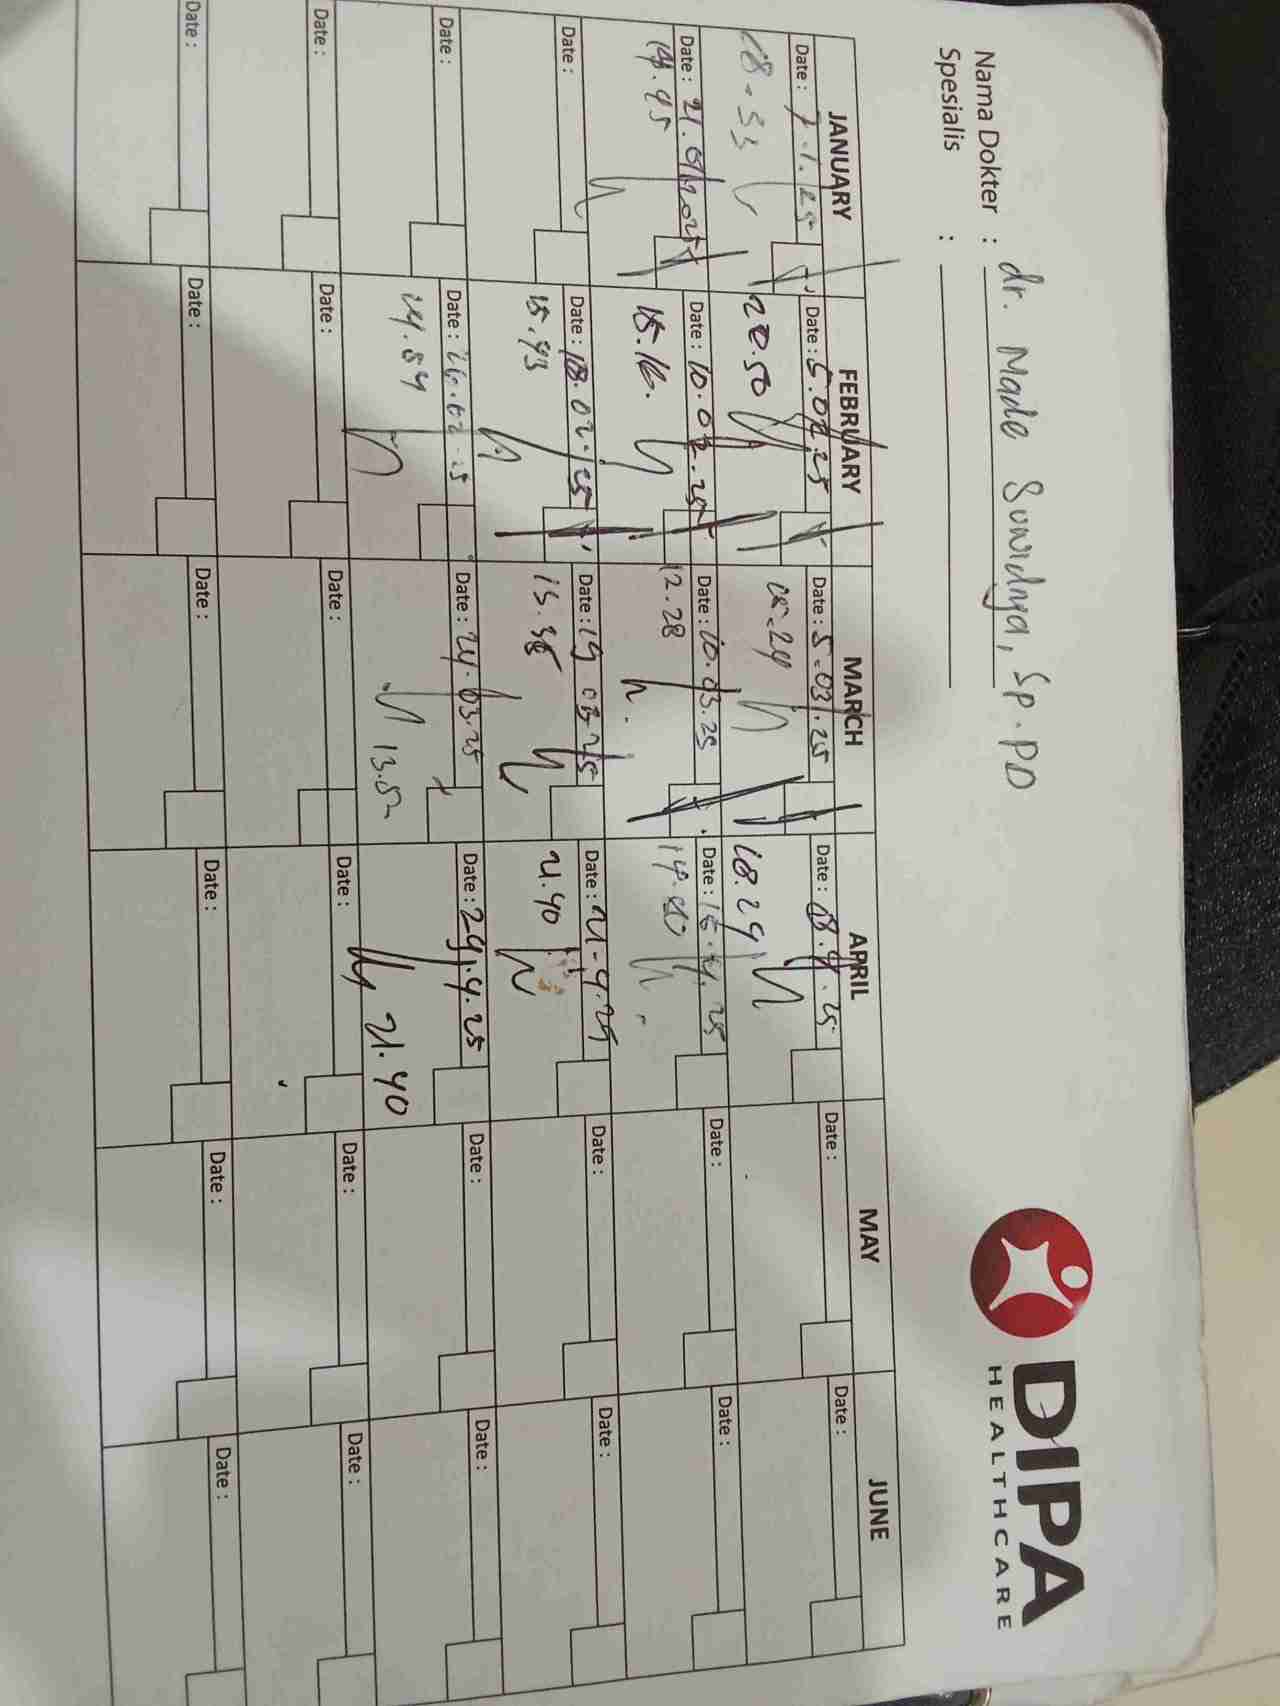 DIPA
HEALTHCARE
Nama Dokter : dr. Made Suwidnya, Sp.PD
Spesialis :
JANUARY FEBRUARY MARCH APRIL MAY JUNE
Date : 7.1.25 Date : 5.02.25 Date : 5.03.25 Date : 08.4.25 Date : Date :
18.33 20.50 18.29
Date : 21.01.2025 Date : 10.02.25 Date : 10.03.25 Date : 15.4.25 Date : Date :
14.45 15.16. 12.28
Date : Date : 18.02.25 Date : 19 03 25 Date : 21.4.25 Date : Date :
15.43 15.38 21.40
Date : Date : 26.02.25 Date : 24.03.25 Date : 29.4.25 Date : Date :
14.54 13.52 21.40
Date : Date : Date : Date : Date : Date :
Date : Date : Date : Date : Date : Date :